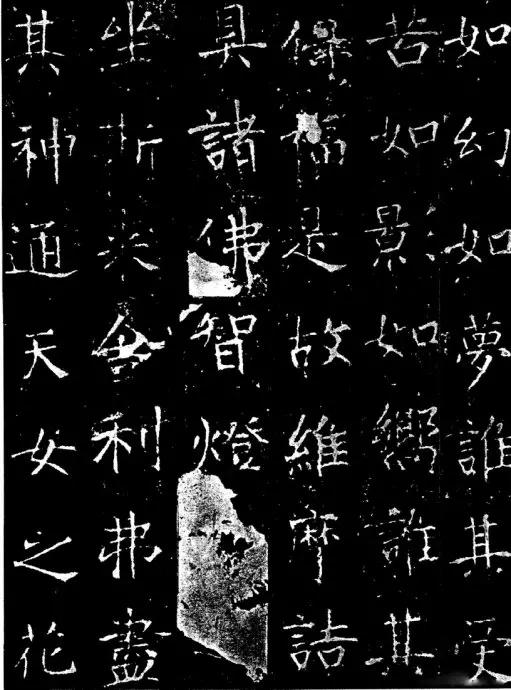 如幻如夢誰其受
苦如影如嚮誰其
祿福是故維摩詰
具諸佛智燈
坐斯來舍利弗盡
其神通天女之花